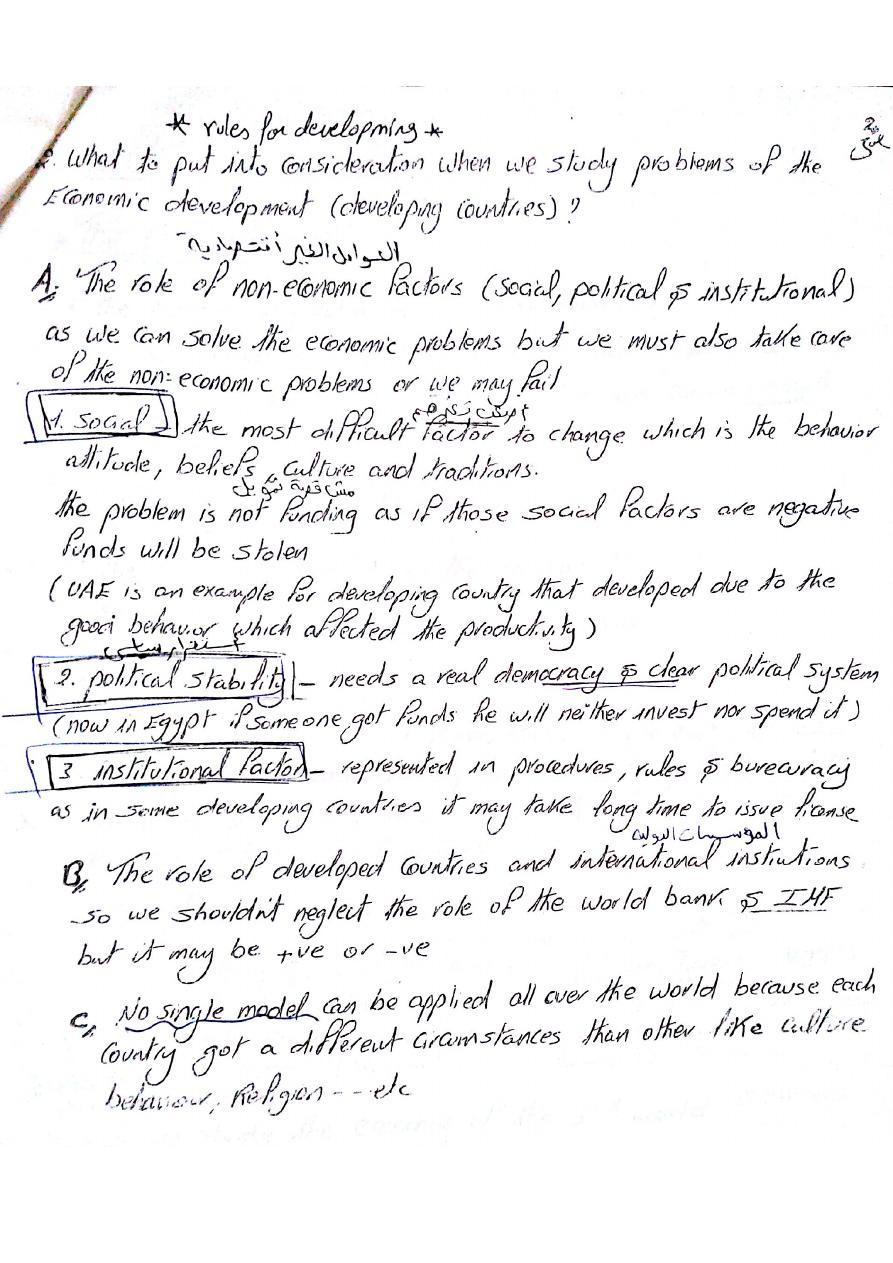 * rules for developming *
2. What to put into consideration when we study problems of the
Economic development (developing countries) ?
العوامل الغير أقتصادية
A. The role of non-economic factors (social, political & institutional)
as we can solve the economic problems but we must also take care
of the non-economic problems or we may fail
1. Social - the most difficult factor to change which is the behavior
attitude, beliefs, culture and traditions.
مش قضية تمويل
the problem is not funding as if those social factors are negative
funds will be stolen
(UAE is an example for developing country that developed due to the
good behavior which affected the productivity)
أستقرار سياسى
2. political stability - needs a real democracy & clear political system
(now in Egypt if someone got funds he will neither invest nor spend it)
3 institutional factor - represented in procedures, rules & burecuracy
as in some developing countries it may take long time to issue license
المؤسسات الدولية
B. The role of developed countries and international instiutions
so we shouldn't neglect the role of the world bank & IMF
but it may be +ve or -ve
C. No single model can be applied all over the world because each
country got a different circumstances than other like culture
behaviour, Religion --- etc